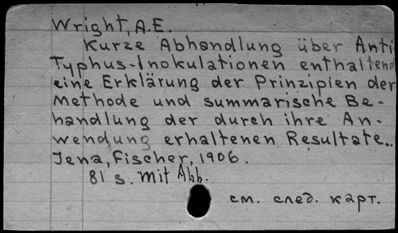 Wright, A.E.
Kurze Abhandlung über Anti
Typhus-Inokulationen enthaltend
eine Erklärung der Prinzipien der
Methode und summarische Be-
handlung der durch ihre An-
wendung erhaltenen Resultate..
Jena, Fischer, 1906.
81 s. mit Abb.
см. след. карт.